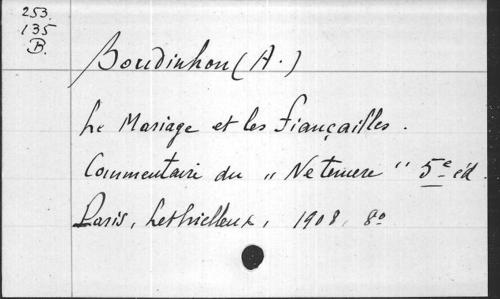 253.
135
B.
Boudinhon (A.)
Le Mariage et les Fiançailles.
Commentaire du „ Ne temere " 5e éd.
Paris, Lethielleux, 1908, 8º